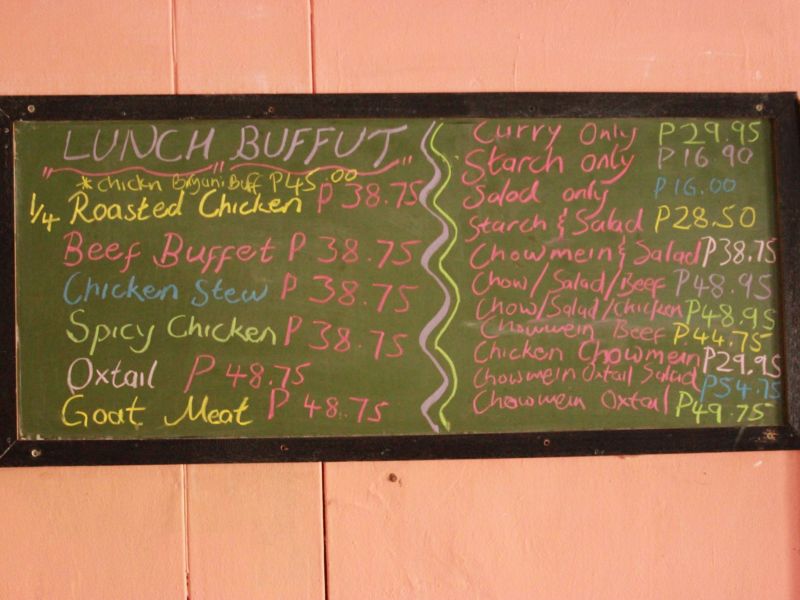 LUNCH BUFFUT
* chickn Bryani Buff P45.00
1/4 Roasted Chicken P 38.75
Beef Buffet P 38.75
Chicken Stew P 38.75
Spicy Chicken P 38.75
Oxtail P 48.75
Goat Meat P 48.75
Curry Only P29.95
Starch only P16.90
Salad only P16.00
Starch & Salad P28.50
Chowmein & Salad P38.75
Chow/Salad/Beef P48.95
Chow/Salad/chicken P48.95
Chowmein Beef P44.75
Chicken Chowmein P29.95
Chowmein Oxtail Salad P54.75
Chowmein Oxtail P49.75